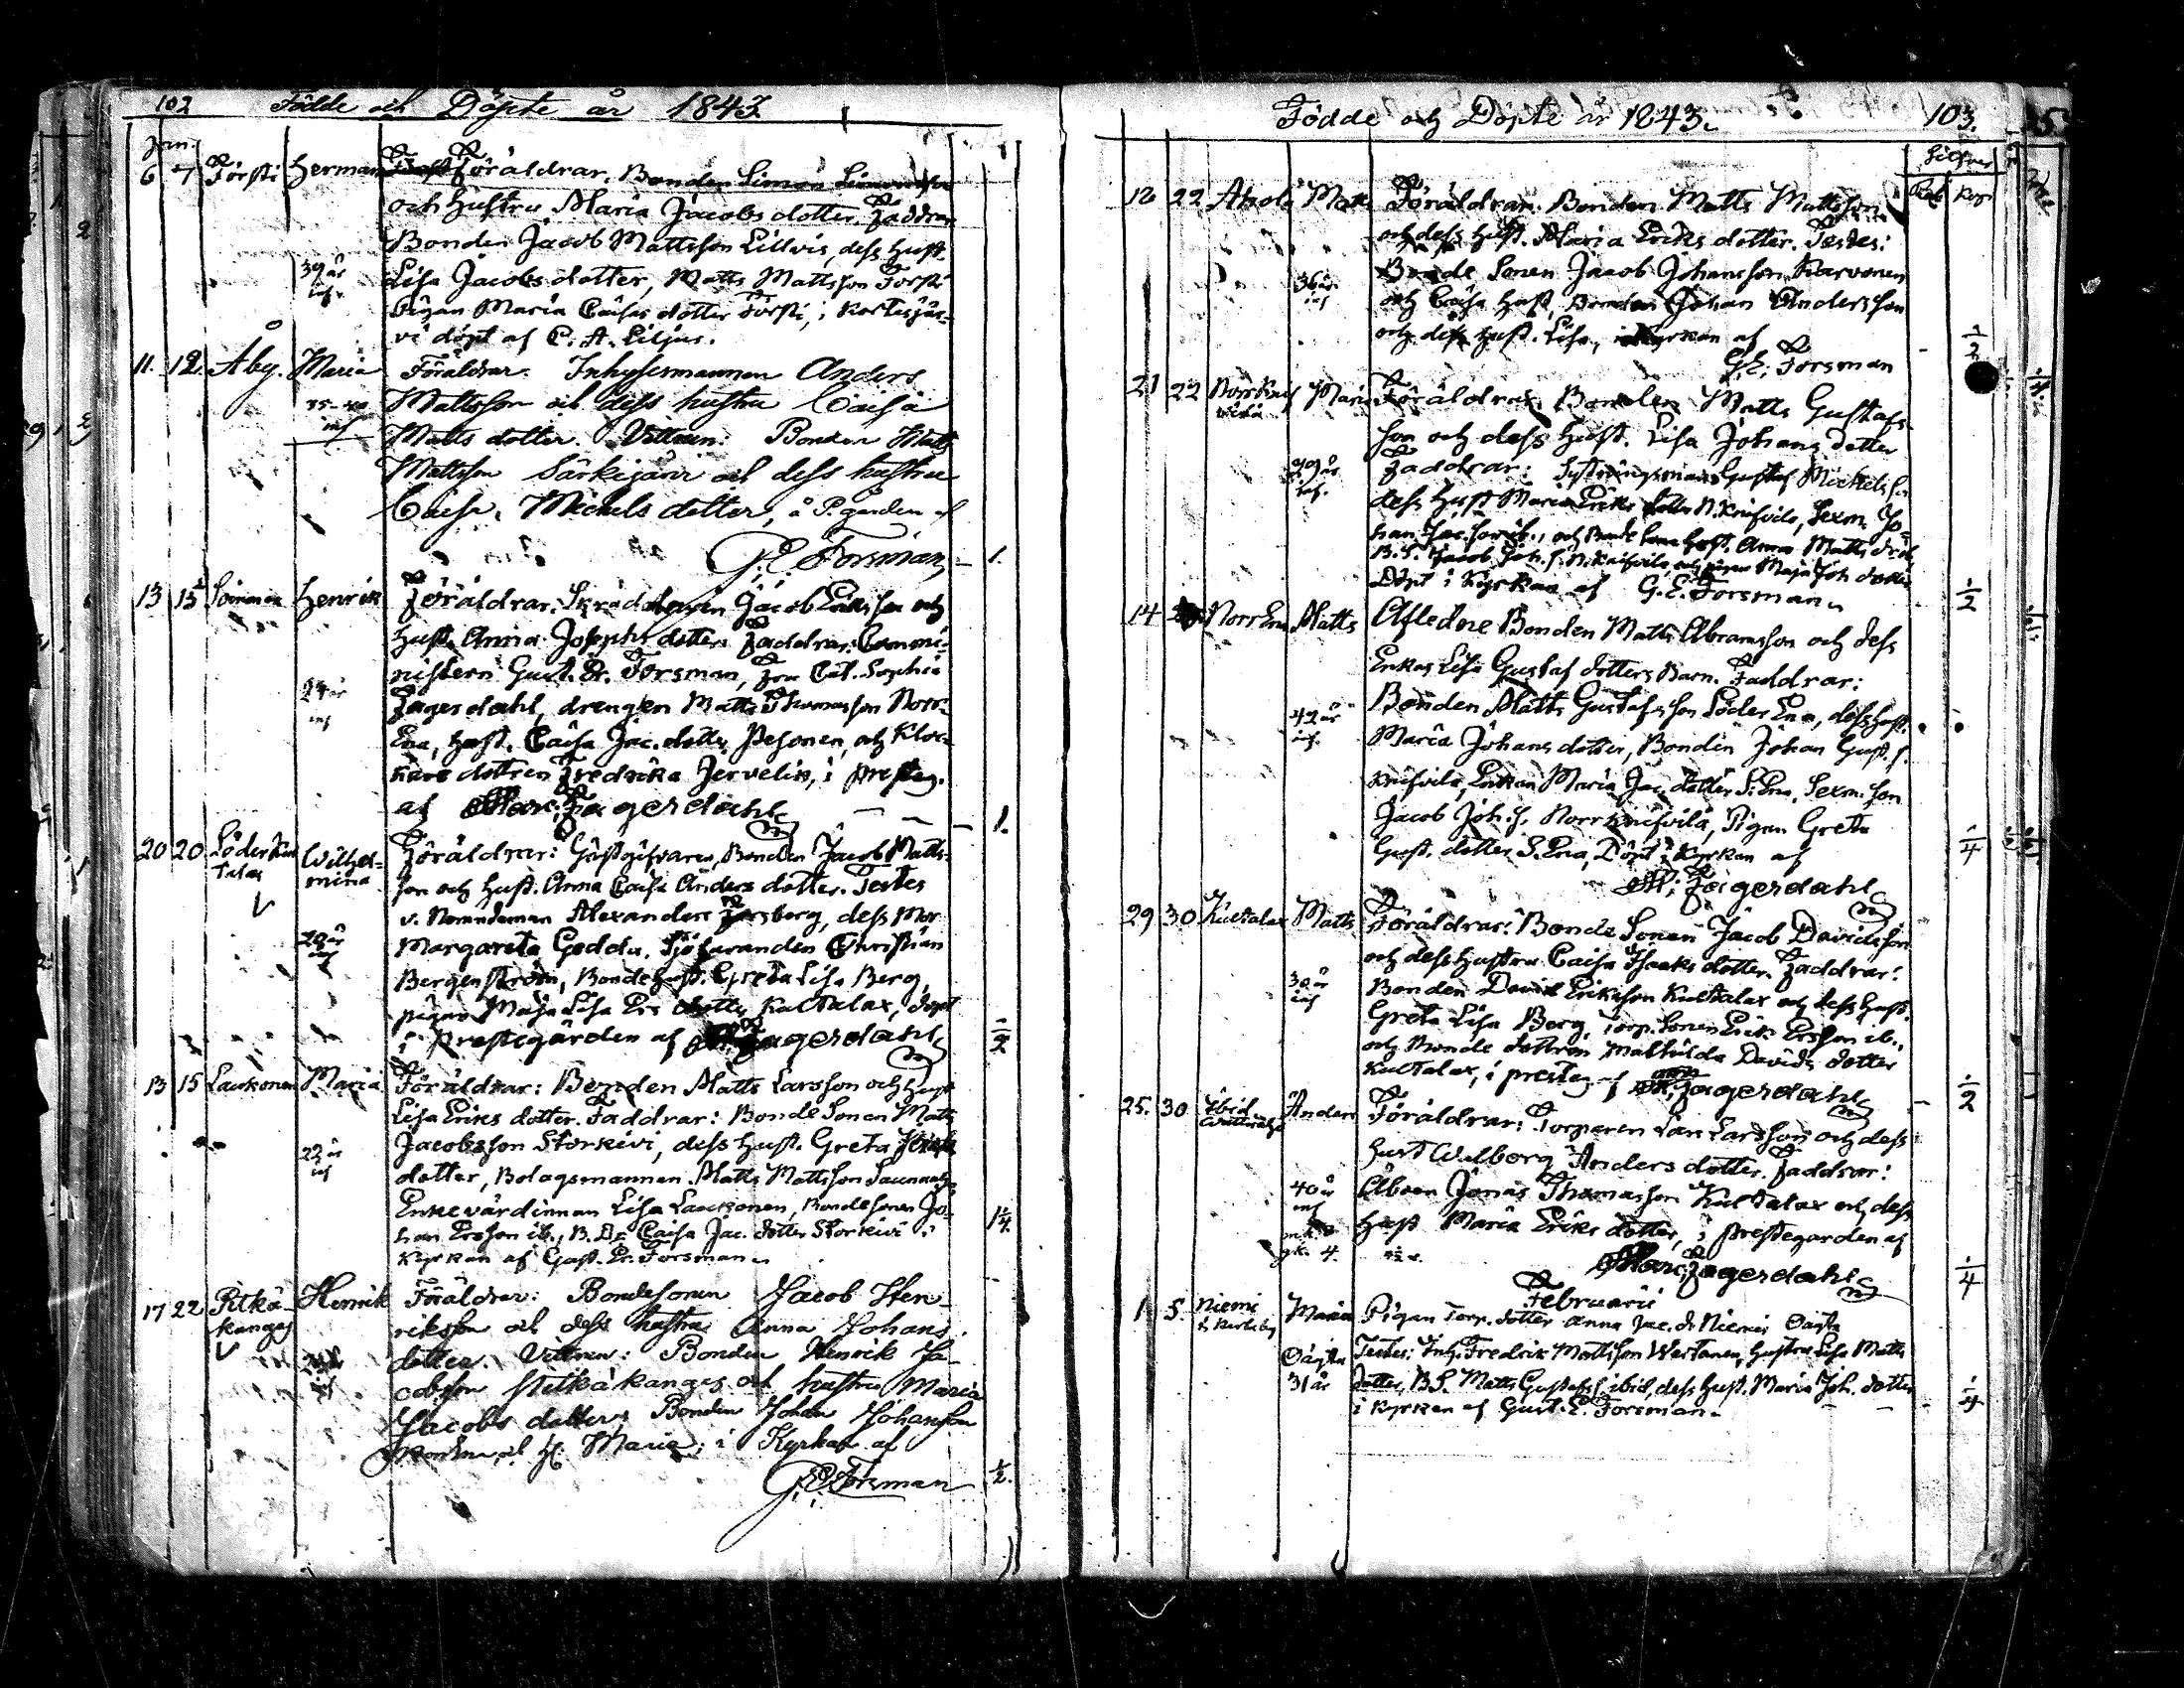 102 Födde och Döpte år 1843
Jan.
6 7 Försti Herman Föräldrar. Bonden Simon Simonsson
och Hustru Maria Jacobs dotter. Faddrar
Bonden Jacob Mattsson Lillvis, dess Hust.
39 år Lisa Jacobs dotter, Matts Mattsson Försti
Pigan Maria Caisas dotter Försti, i Kortesjär-
vi döpt af C. A. Liljus.
11. 12. Åby. Maria Föräldrar. Inhysesmannen Anders
35-40 Mattsson och dess hustru Caisa
inf Matts dotter. Vittnen: Bonden Matts
Mattsson Särkijärvi och dess hustru
Caisa Michels dotter, å P.gården af
G. E. Forsman, 1.
13 15 Soinonen Henrik Föräldrar. Skräddaren Jacob Eriksson och
Hust. Anna Josephs dotter. Faddrar: Commi-
nistern Gust. Er. Forsman, Fru Cat. Sophia
24 år Fagerdahl, drengen Matts Thomasson Norr-
inf Ena, Hust. Caisa Jac. dotter Pesonen, och Kloc-
kare dottren Fredrika Jervelin, i presteg.
af Marc. Fagerdahl 1.
20 20 Söder Kul Wilhel- Föräldrar: Gästgifvaren, Bonden Jacob Matts-
talax mina son och Hust. Anna Caisa Anders dotter. Testes
v. Nemndeman Alexander Forsberg, dess Mor
Margareta Gedda, Sjöfaranden Christian
inf Bergenström, Bonde Hust. Greta Lisa Berg,
pigan Maja Lisa Ers dotter Kultalax, döpt
i Prestegården af Fagerdahl 1/2
13 15 Laukonen Maria Föräldrar: Bonden Matts Larsson och Hust
Lisa Eriks dotter. Faddrar: Bonde Sonen Matts
22 år Jacobsson Storkivi, dess Hust. Greta
inf dotter, Bolagsmannen Matts Mattsson
Enkevärdinnan Lisa Laukonen, Bondesonen Jo-
han Ersson ib., B. D. Caisa Jac. dotter Storkivi i
Kyrkan af Gust. Er. Forsman 1/4
17 22 Pitkä- Henrik Föräldrar: Bondesonen Jacob Hen-
kangas riksson och dess hustru Anna Johans
dotter. Vittnen: Bonden Henrik Ja-
cobsson Pitkäkangas och hustru Maria
Jacobs dotter, Bonden Johan Johansson
och H. Maria; i Kyrkan af
G. E. Forsman 1/2.
Födde och Döpte år 1843. 103.
Silfver
Rub Kop
18 22 Ahola Matts Föräldrar: Bonden Matts Mattsson
och dess Hust. Maria Eriks dotter. Testes:
36 år Bonde Sonen Jacob Johansson Karvonen
inf och Caisa Hust, Bonden Johan Andersson
och dess Hust. Lisa, i Kyrkan af
G. E. Forsman 1/2
21 22 Norrknif Maria Föräldrar: Bonden Matts Gustafs-
vila son och dess Hust. Lisa Johans dotter
29 år Faddrar: Gustaf Michelsson
inf. dess Hust Maria Eriks dotter N. Knifvila, Sexm. Jo-
han Jac. son ib., och Bonde Hust. Anna Matts dotter,
B. S. Jacob Joh. s. N. Knifvila, och pigan Maja Joh dotter
Döpt i Kyrkan af G. E. Forsman 1/2
14 Norr Ena Matts Aflidne Bonden Matts Abramsson och dess
Enkas Lisa Gustaf dotters Barn. Faddrar:
42 år Bonden Matts Gustafsson Söder Ena, dess Hust.
inf. Maria Johans dotter, Bonden Johan Gust. s.
Knifvila, Enkan Maria Jac. dotter S. Ena, Sexm. son
Jacob Joh. s. Norrknifvila, Pigan Greta
Gust. dotter S. Ena, Döpt i Kyrkan af
M. Fagerdahl 1/4
29 30 Kultalax Matts Föräldrar: Bonde Sonen Jacob Davidsson
och dess Hustru Caisa Isaaks dotter. Faddrar:
30 år Bonden David Eriksson Kultalax och dess Hust.
inf Greta Lisa Berg, Torp. Sonen Erik Ersson ib.,
och Bonde dottren Mathilda Davids dotter
Kultalax, i presteg. af M. Fagerdahl 1/2
25. 30 Ibid Anders Föräldrar: Torparen Lars Larsson och dess
Hust Walborg Anders dotter. Faddrar:
40 år Åboen Jonas Thomasson Kultalax och dess
inf Hust Maria Eriks dotter, i prestegarden af
Marc. Fagerdahl 1/4
Februarii
1. 5. Niemi Maria Pigan Torp. dotter Anna Jac. dr Niemis Oägta
Oägta Testes: Inh. Fredrik Mattsson Wertanen, Hustru Lisa Matts
31 år dotter, B.S. Matts Gustafs s. ibid, dess Hust. Maria Joh. dotter
i Kyrkan af Gust. E. Forsman. 1/4